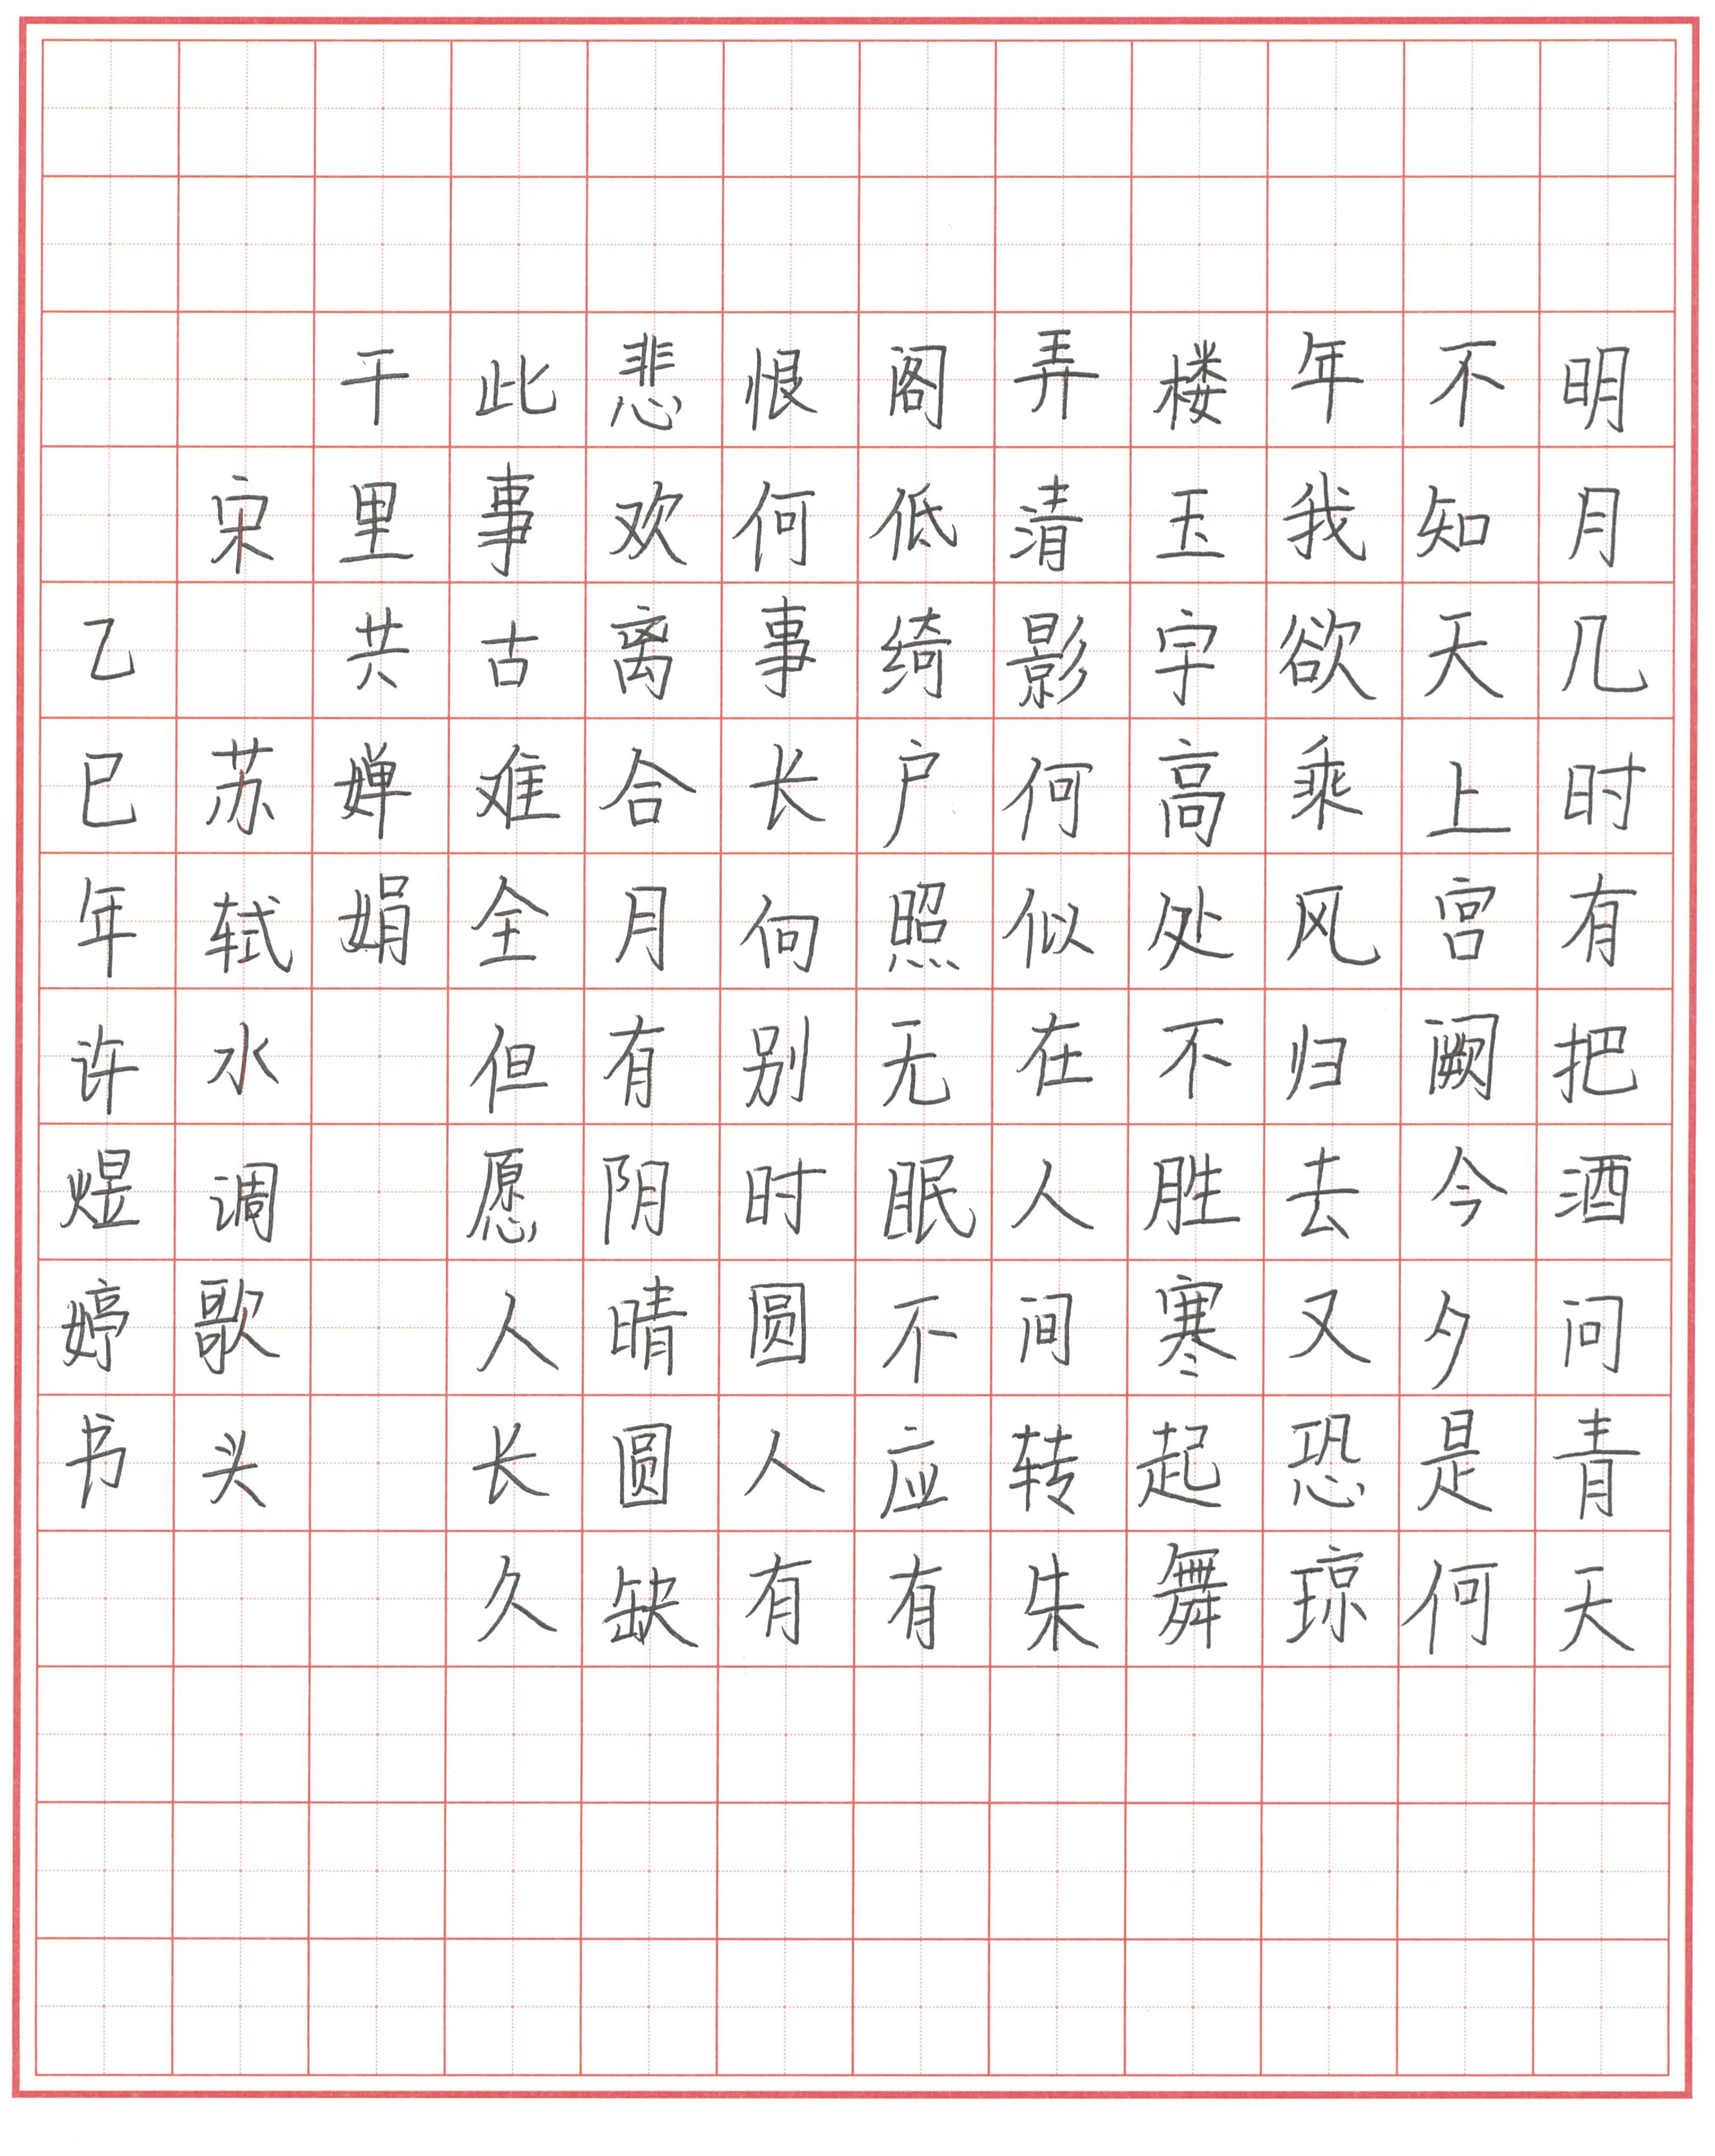 明月几时有把酒问青天
不知天上宫阙今夕是何
年我欲乘风归去又恐琼
楼玉宇高处不胜寒起舞
弄清影何似在人间转朱
阁低绮户照无眠不应有
恨何事长向别时圆人有
悲欢离合月有阴晴圆缺
此事古难全但愿人长久
千里共婵娟
宋 苏轼水调歌头
乙巳年许煜婷书